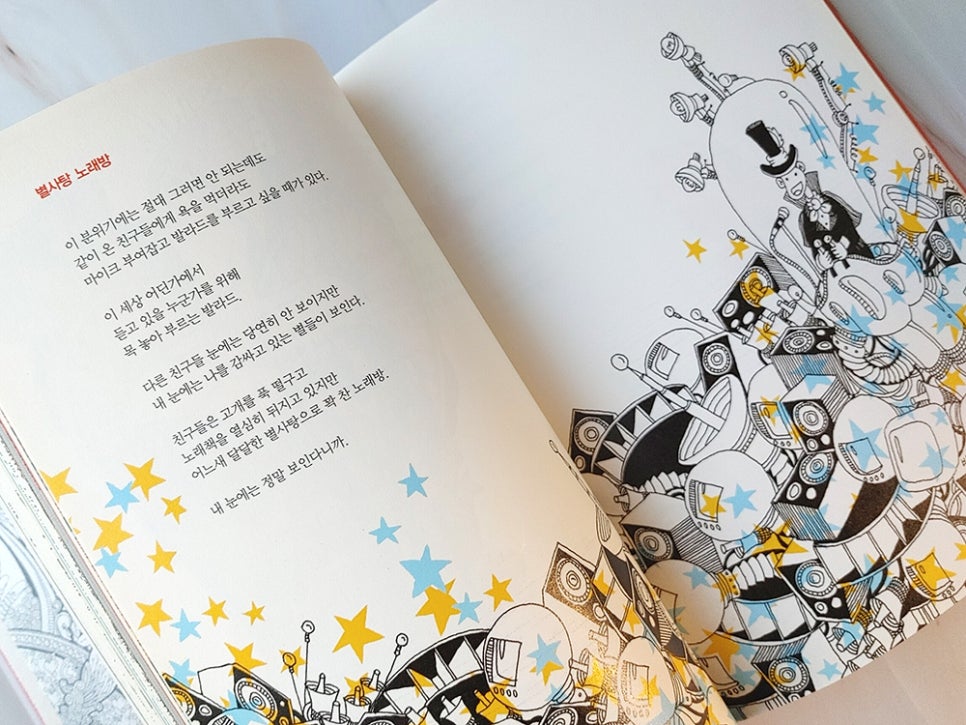 별사탕 노래방
이 분위기에는 절대 그러면 안 되는데도
같이 온 친구들에게 욕을 먹더라도
마이크 부여잡고 발라드를 부르고 싶을 때가 있다.
이 세상 어딘가에서
듣고 있을 누군가를 위해
목 놓아 부르는 발라드.
다른 친구들 눈에는 당연히 안 보이지만
내 눈에는 나를 감싸고 있는 별들이 보인다.
친구들은 고개를 푹 떨구고
노래책을 열심히 뒤지고 있지만
어느새 달달한 별사탕으로 꽉 찬 노래방.
내 눈에는 정말 보인다니까.